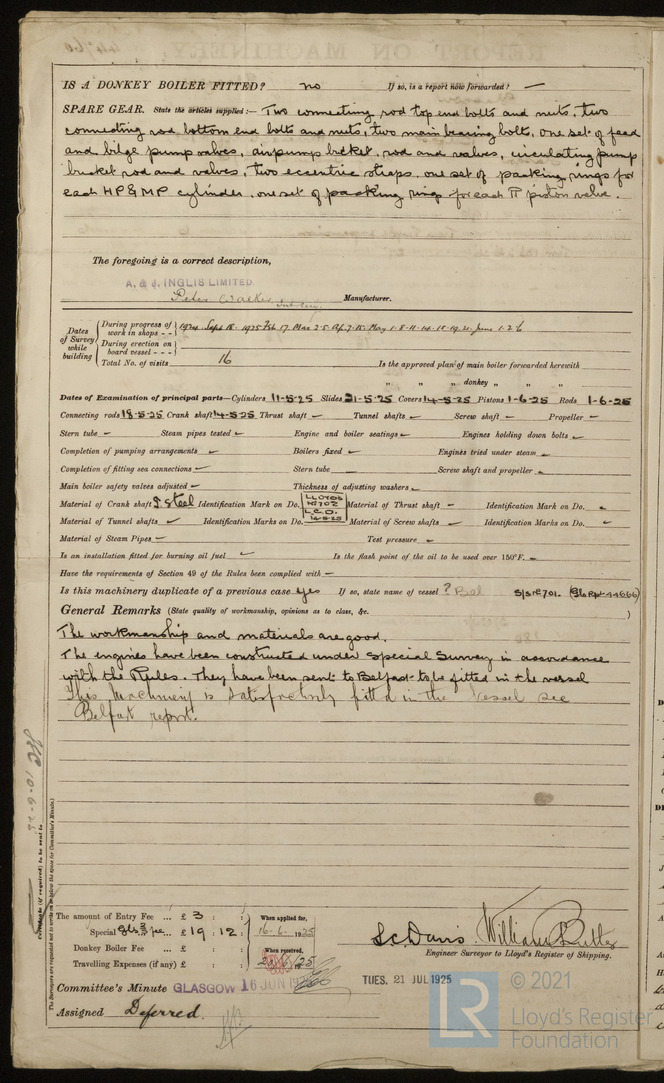 IS A DONKEY BOILER FITTED? no If so, is a report now forwarded? —
SPARE GEAR. State the articles supplied:— Two connecting rod top end bolts and nuts, two
connecting rod bottom end bolts and nuts, two main bearing bolts, one set of feed
and bilge pump valves, airpump bucket, rod and valves, circulating pump
bucket rod and valves, two eccentric straps, one set of packing rings for
each HP & MP cylinder, one set of packing rings for each piston valve.
The foregoing is a correct description,
A. & J. INGLIS LIMITED.
Manufacturer.
Dates of Survey while building
During progress of work in shops - - 1924 Sept 18 - 1925 Feb 17. Mar 25. Ap 7.15. May 1.8.11.14.18.19.21. June 1.2.6
During erection on board vessel - - -
Total No. of visits 16 Is the approved plan of main boiler forwarded herewith
" " " donkey " " "
Dates of Examination of principal parts—Cylinders 11-5-25 Slides 21-5-25 Covers 14-5-25 Pistons 1-6-25 Rods 1-6-25
Connecting rods 18-5-25 Crank shaft 14-5-25 Thrust shaft – Tunnel shafts – Screw shaft – Propeller –
Stern tube – Steam pipes tested – Engine and boiler seatings – Engines holding down bolts –
Completion of pumping arrangements – Boilers fixed – Engines tried under steam –
Completion of fitting sea connections – Stern tube Screw shaft and propeller –
Main boiler safety valves adjusted – Thickness of adjusting washers –
Material of Crank shaft S. Steel Identification Mark on Do. LLOYDS L.C.D. 14-5-25 Material of Thrust shaft – Identification Mark on Do. –
Material of Tunnel shafts – Identification Marks on Do. Material of Screw shafts – Identification Marks on Do. –
Material of Steam Pipes – Test pressure –
Is an installation fitted for burning oil fuel – Is the flash point of the oil to be used over 150°F. –
Have the requirements of Section 49 of the Rules been complied with –
Is this machinery duplicate of a previous case Yes If so, state name of vessel ? Bel S/S No 701. (Gls Rpt 44666)
General Remarks (State quality of workmanship, opinions as to class, &c. )
The workmanship and materials are good.
The engines have been constructed under Special Survey in accordance
with the Rules. They have been sent to Belfast to be fitted in the vessel
This machinery is satisfactorily fitted in the vessel see
Belfast report.
Certificate (if required) to be sent to
The Surveyors are requested not to write on or below the space for Committee's Minute.
The amount of Entry Fee ... £ 3 : :
Special ... £ 19 : 12 :
Donkey Boiler Fee ... £ : :
Travelling Expenses (if any) £ : :
When applied for, 16.6.1925
When received,
S.C. Davis. William Butler
Engineer Surveyor to Lloyd's Register of Shipping.
Committee's Minute GLASGOW 16 JUN 1925
TUES. 21 JUL 1925
Assigned Deferred.
LR
© 2021
Lloyd's Register
Foundation